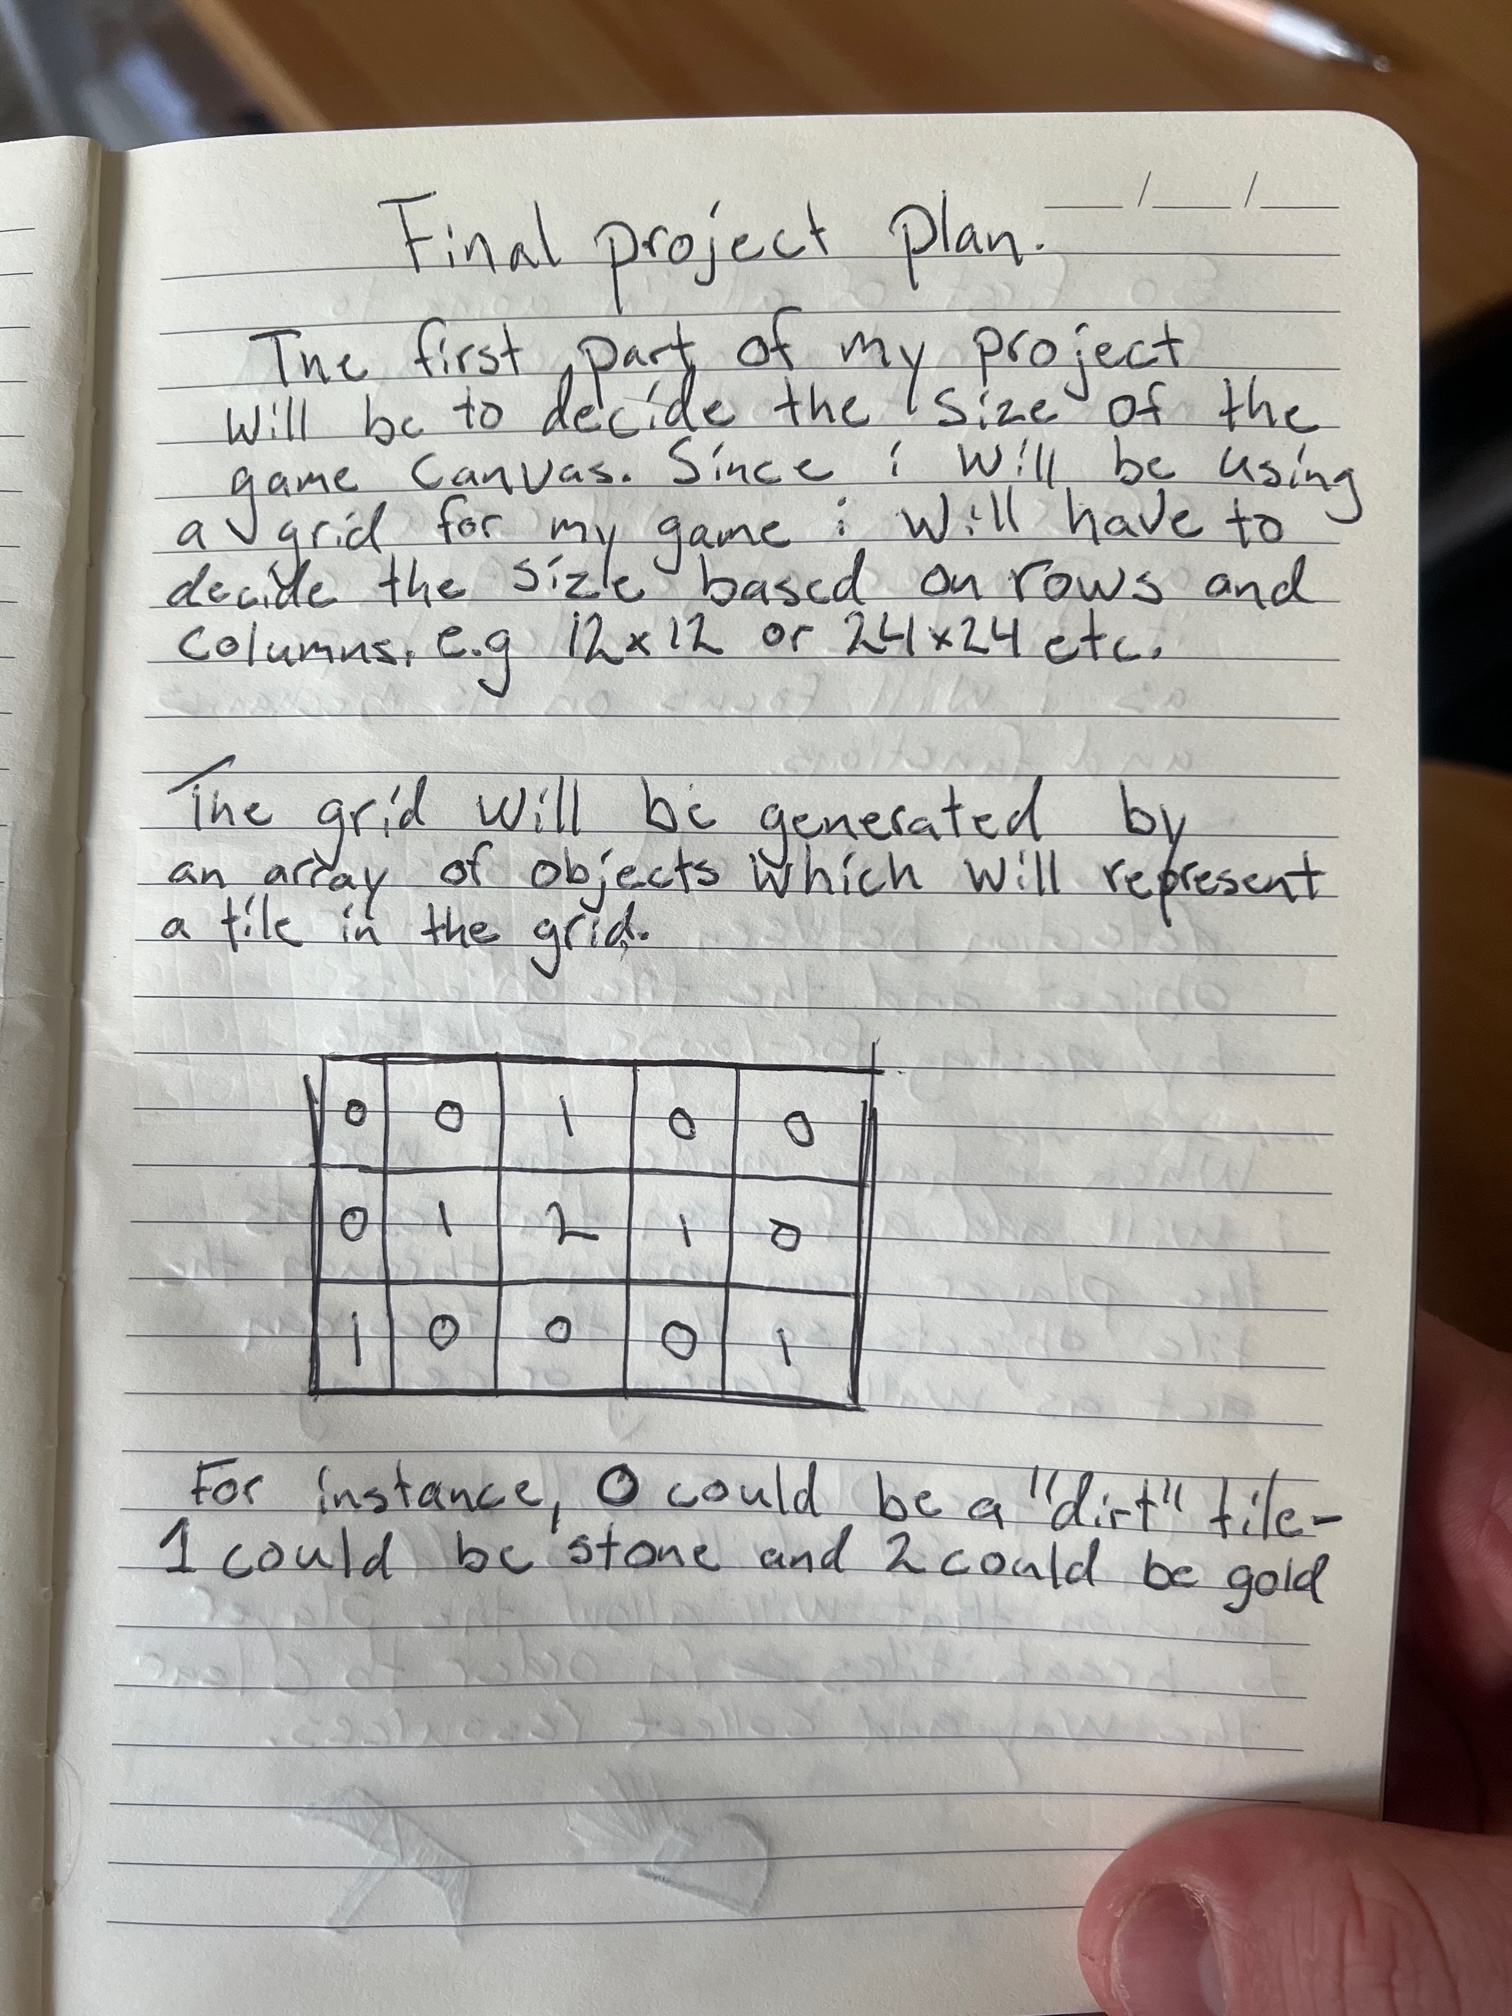 Final project plan.
The first part of my project
will be to decide the size of the
game canvas. Since i will be using
a grid for my game i will have to
decide the size based on rows and
columns, e.g 12x12 or 24x24 etc.
The grid will be generated by
an array of objects which will represent
a tile in the grid.
0 0 1 0 0
0 1 2 1 0
1 0 0 0 1
For instance, 0 could be a "dirt" tile-
1 could be stone and 2 could be gold